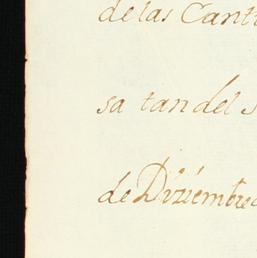 de las Cant
sa tan del s
de Diziembre